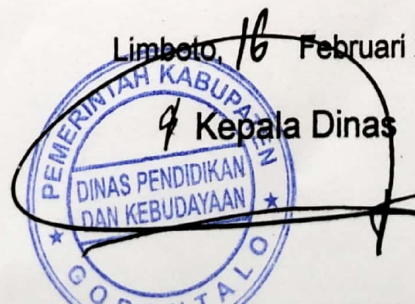 Limboto, 16 Februari
Kepala Dinas
PEMERINTAH KABUPATEN
DINAS PENDIDIKAN
DAN KEBUDAYAAN
GORONTALO